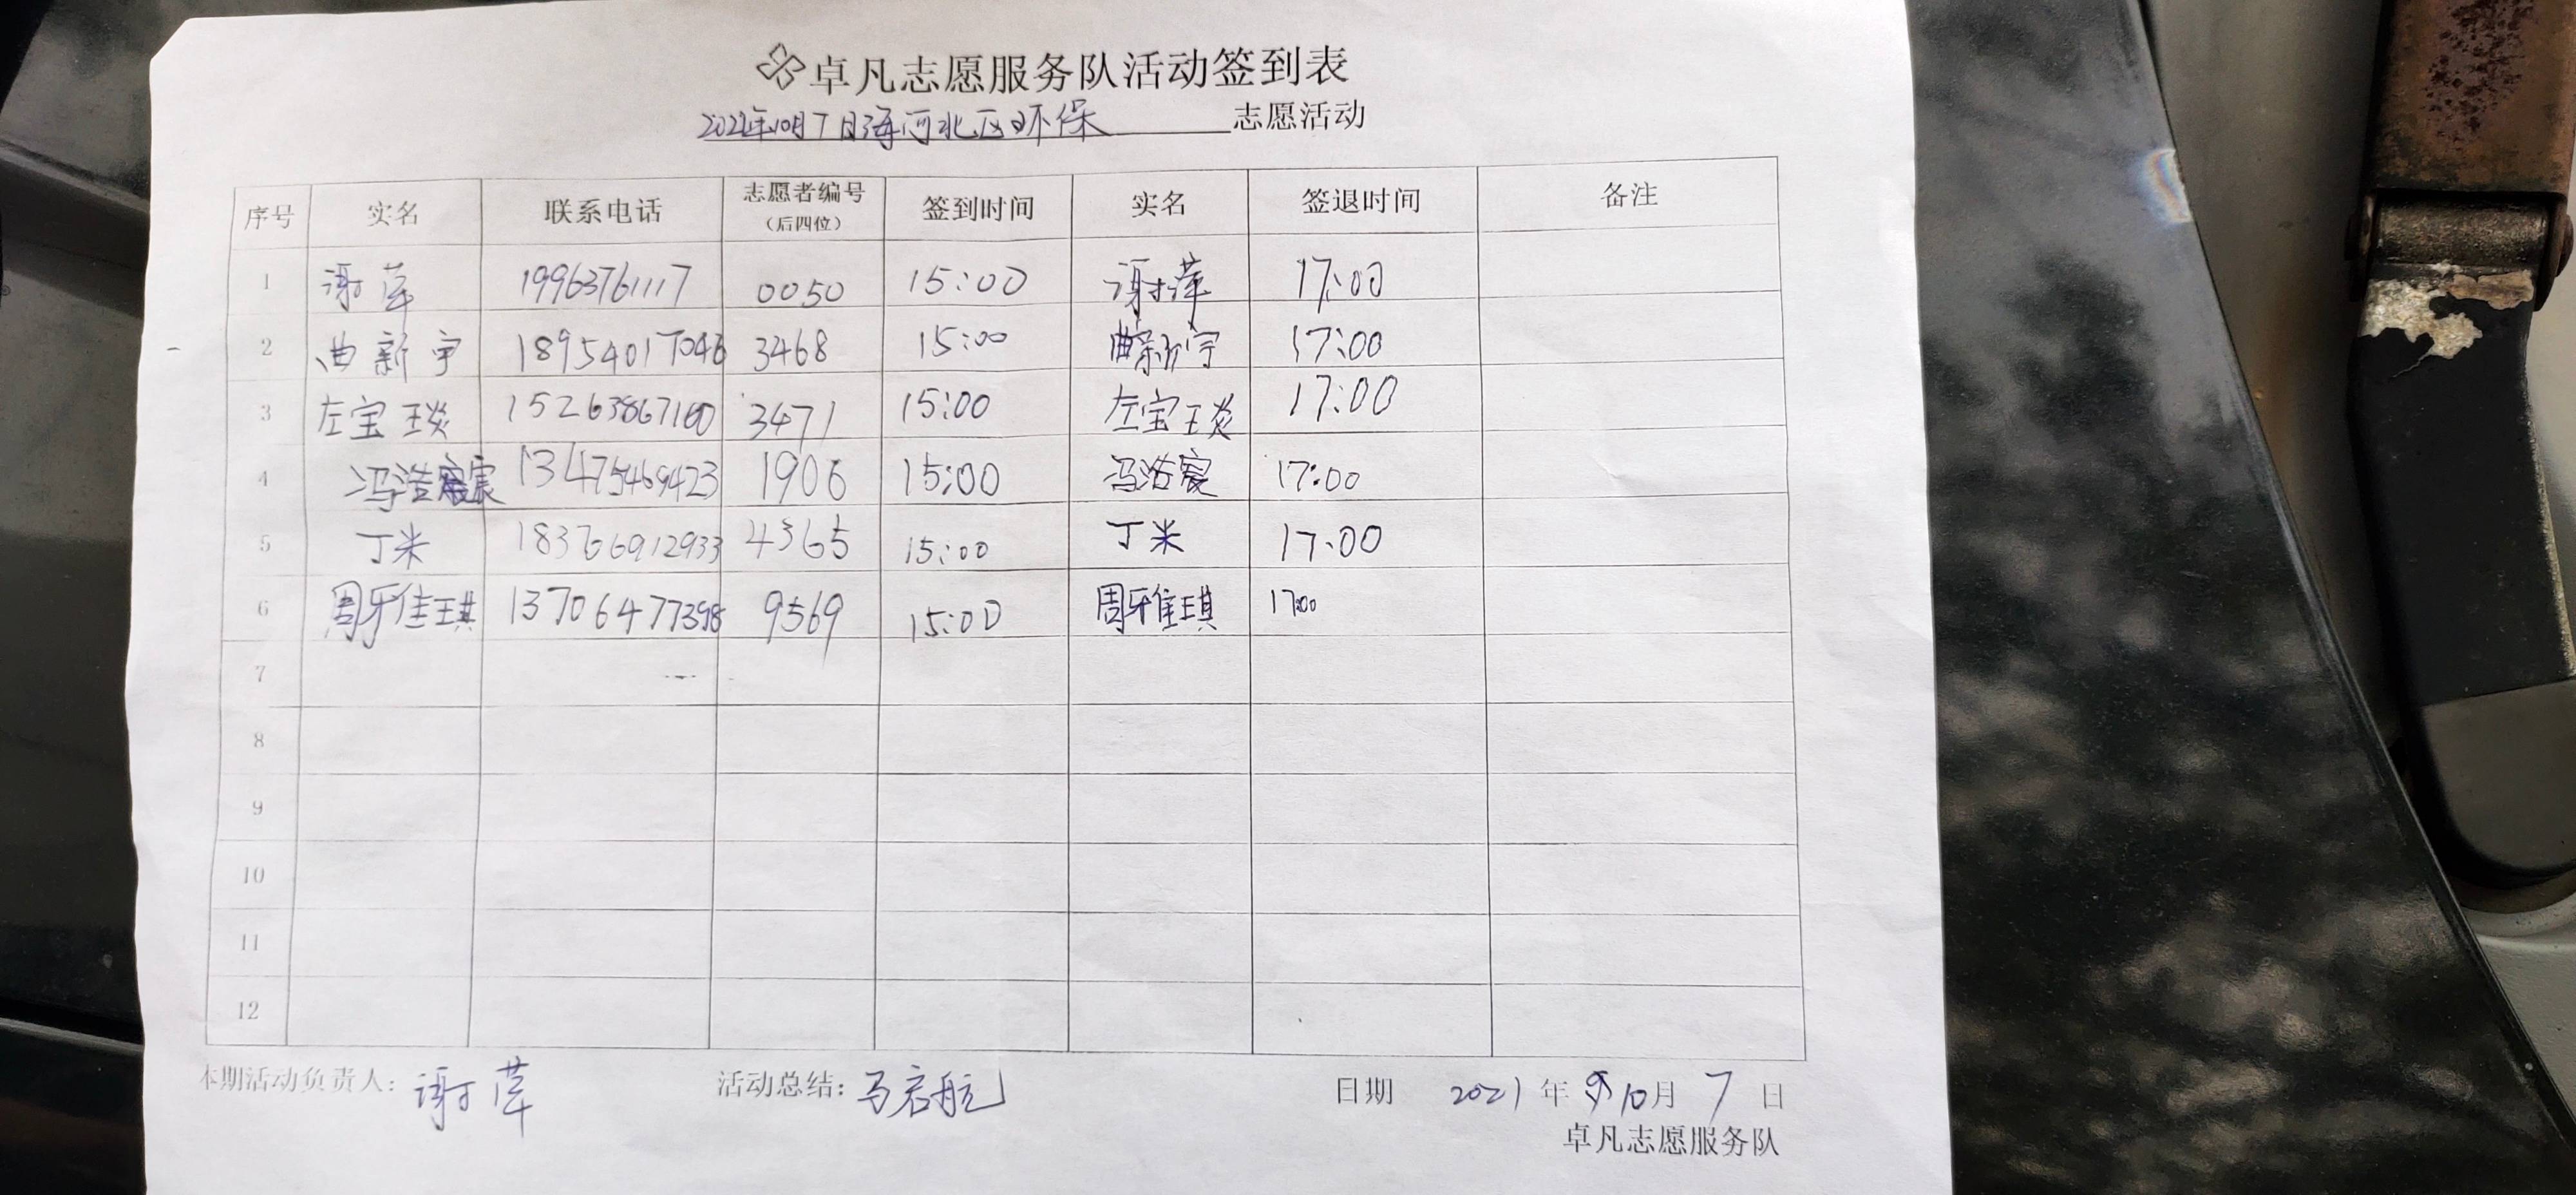 卓凡志愿服务队活动签到表
2021年10月7日海河北区环保 志愿活动
序号 实名 联系电话 志愿者编号（后四位） 签到时间 实名 签退时间 备注
1 谢萍 19963761117 0050 15:00 谢萍 17:00
2 曲新宇 18954017046 3468 15:00 曲新宇 17:00
3 左宝琰 15263867100 3471 15:00 左宝琰 17:00
4 冯浩宸 13475469423 1906 15:00 冯浩宸 17:00
5 丁米 18366912933 4365 15:00 丁米 17:00
6 周雅琪 13706477398 9569 15:00 周雅琪 17:00
7
8
9
10
11
12
本期活动负责人：谢萍 活动总结：马启航 日期 2021年10月7日
卓凡志愿服务队